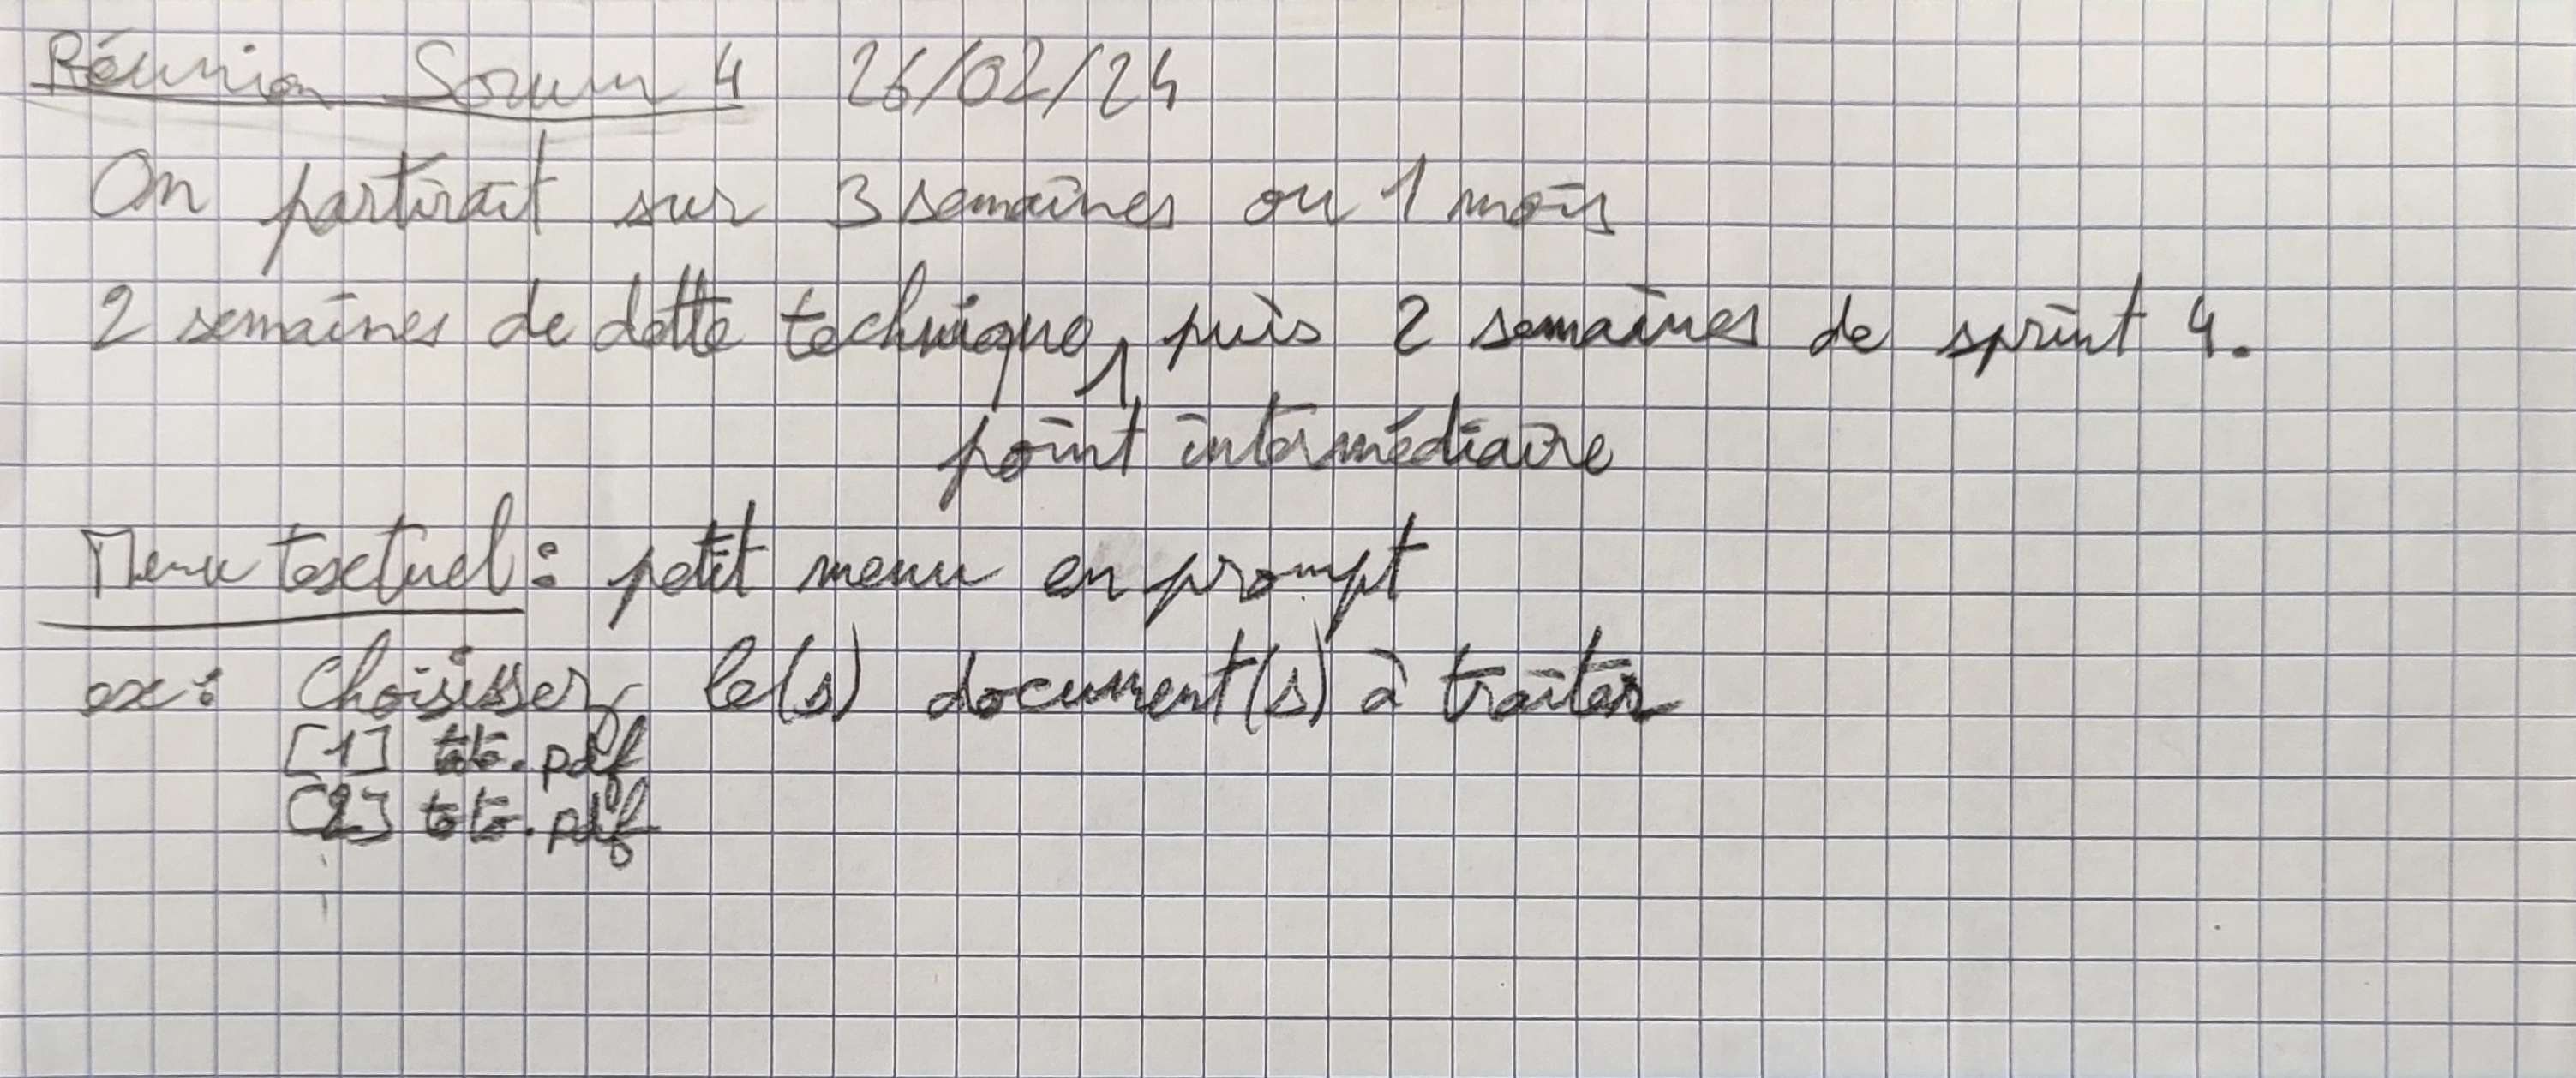 Réunion Scrum 4 26/02/24
On partirait sur 3 semaines ou 1 mois
2 semaines de dette technique, puis 2 semaines de sprint 4.
point intermédiaire
Menu textuel : petit menu en prompt
ex : Choisissez le(s) document(s) à traiter
[1] toto.pdf
[2] toto.pdf